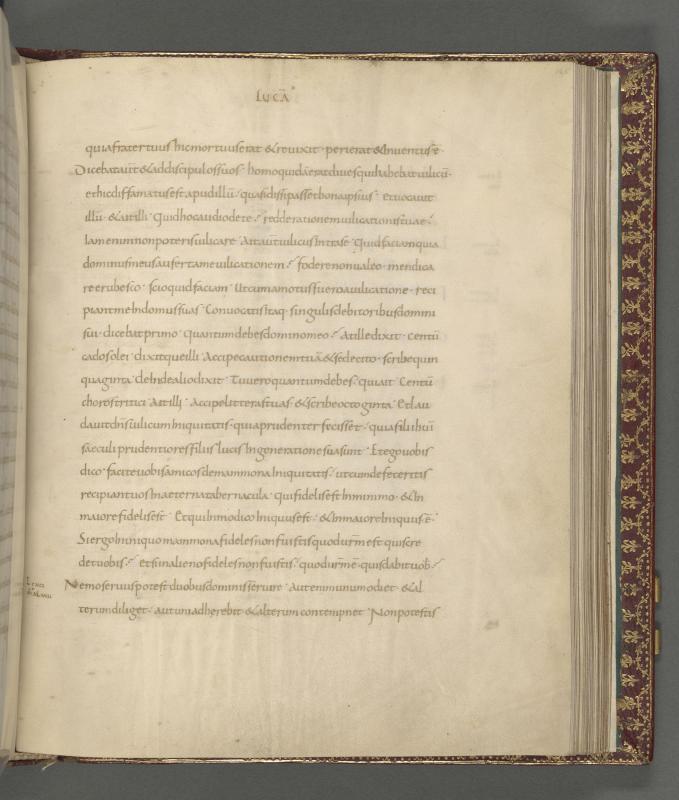 LUCĀ
quiafratertuus hicmortuuserat &revixit · perierat &inventus ē
Dicebatautē &addiscipulossuos · homoquidāeratdivesquihabebatvilicū ·
ethicdiffamatusest apudillū · quasidissipassetbonaipsius · etvocavit
illū · &aitilli · Quidhocaudiodete · redderationemvilicationistuae ·
Iamenimnonpoterisvilicare · Aitautēvilicusintrase · Quidfaciamquia
dominusmeusaufertamevilicationem · foderenonvaleo · mendica
reerubesco · scioquidfaciam · Utcumamotusfueroavilicatione · reci
piantmeindomussuas · Convocatisitaq · singulisdebitoribusdomini
sui · dicebatprimo · Quantumdebesdominomeo · Atilledixit · Centū
cadosolei · dixitqueilli · Accipecautionemtuā &sedecito · scribequin
quaginta · deindealiodixit · Tuveroquantumdebes · quiait · Centū
chorostritici · Aitilli · Accipelitterastuas · &scribeoctoginta · Etlau
davitdn̄svilicuminiquitatis · quiaprudenterfecisset · quiafiliihuiʼ
saeculiprudentioresfiliis lucis ingenerationesuasunt · Etegovobis
dico · facitevobisamicosdemammonainiquitatis · utcumdefeceritis
recipiantvosinaeternatabernacula · quifidelisest inminimo · &in
maiorefidelisest · Etquiinmodicoiniquusest · &inmaioreiniquus ē ·
Siergoininiquomammonafidelesnonfuistisquodverūest quiscre
detvobis · etsiinalienofidelesnonfuistis · quodvestrūē · quisdabitvob ·
Nemoservuspotest duobusdominisservire · Autenimunumodiet · &al
terumdiliget · autuniadherebit &alterumcontemnet · Nonpotestis